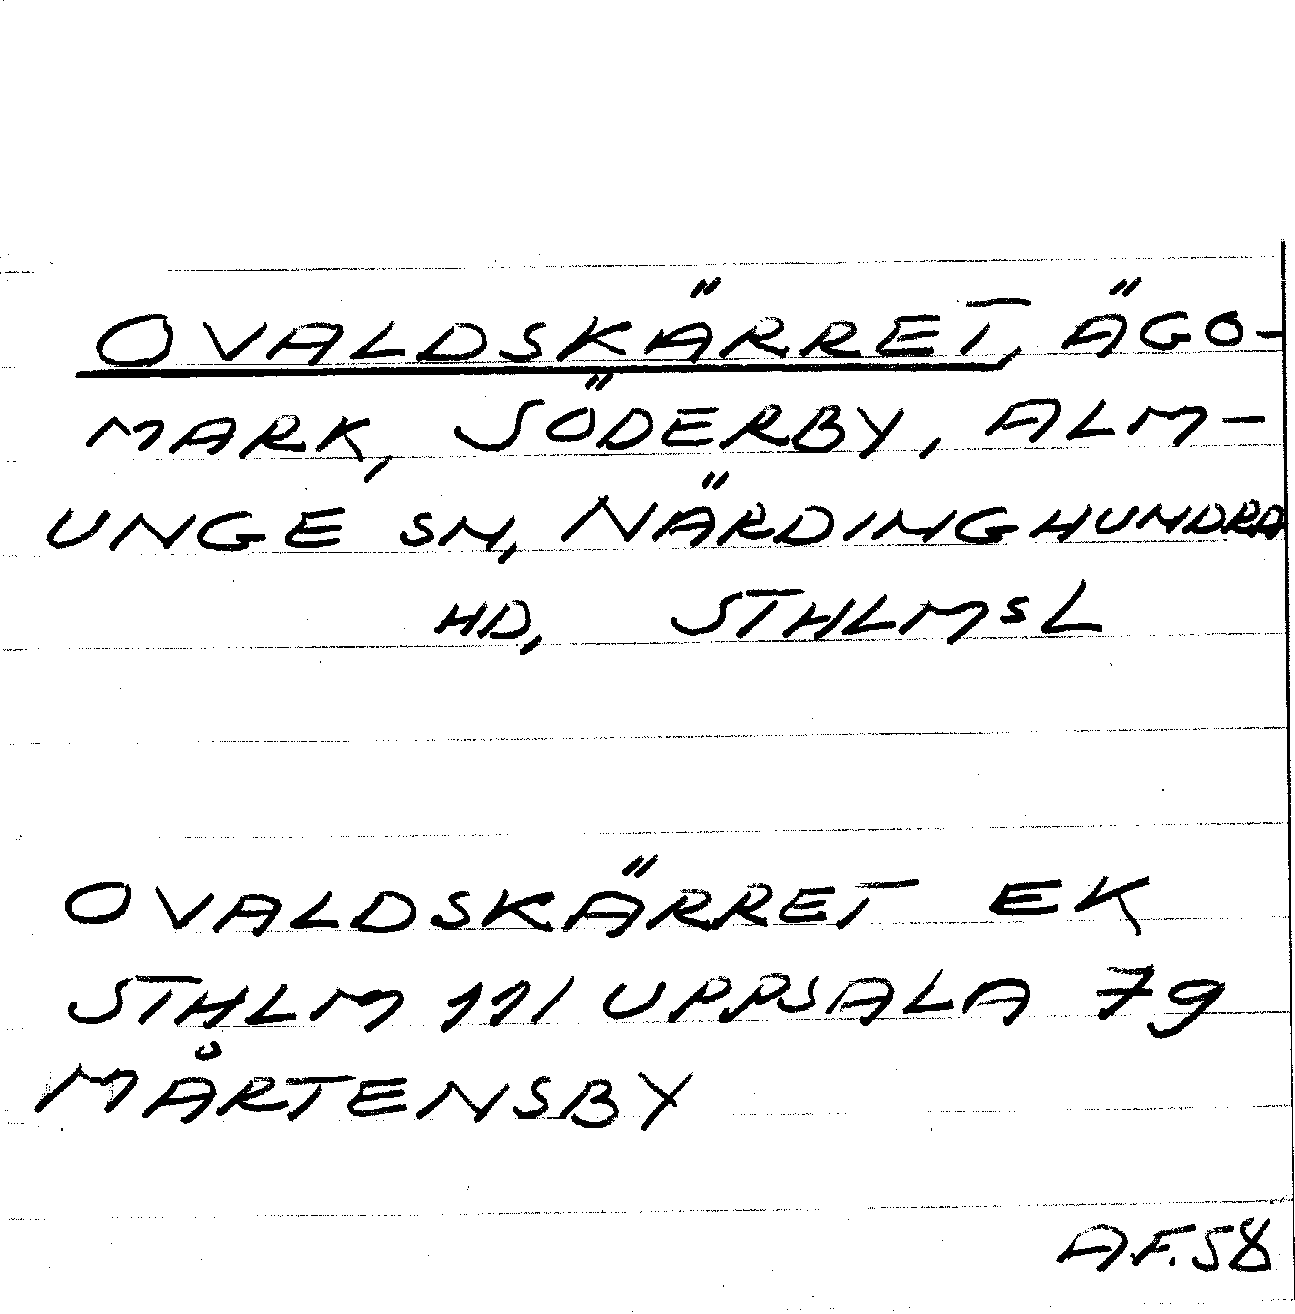 OVALDSKÄRRET, ÄGO-
MARK, SÖDERBY, ALM-
UNGE SN, NÄRDINGHUNDRA
HD, STHLMSL
OVALDSKÄRRET EK
STHLM 111 UPPSALA 79
MÅRTENSBY
AF.58